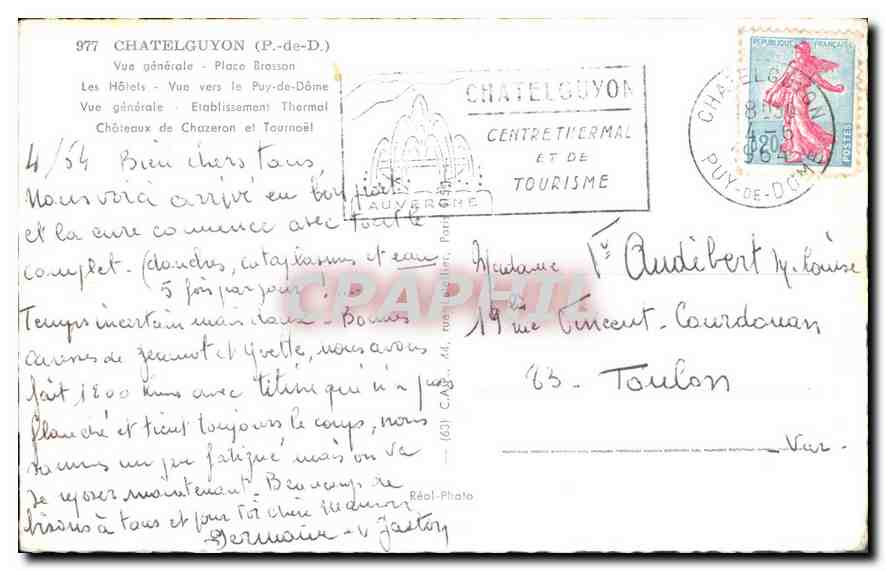 977 CHATELGUYON (P.-de-D.)
Vue générale - Place Brosson
Les Hôtels - Vue vers le Puy-de-Dôme
Vue générale - Etablissement Thermal
Châteaux de Chazeron et Tournoël
CHATELGUYON
CENTRE THERMAL
ET DE
TOURISME
AUVERGNE
REPUBLIQUE FRANÇAISE
0,20
POSTES
CHATELGUYON
18H
4-6
1964
PUY-DE-DOME
Bien chers tous,
Nous voici arrivé en bon port
et la cure commence avec tout le
complet. (douches, cataplasmes et eau
5 fois par jour)
Temps incertain mais doux. Bonnes
de Jeannot et Yvette, nous avons
fait 1200 kms avec titine qui n'a pas
flanché et tient toujours le coup, nous
sommes un peu fatigué mais on va
se reposer maintenant. Beaucoup de
bisous à tous et pour toi chère
Germaine
Madame Vve Audibert M. Louise
19 rue Vincent-Courdouan
83 - Toulon
Var.
(63) C.A.P. 44, rue Letellier, Paris
Réal-Photo
CPAPHIL